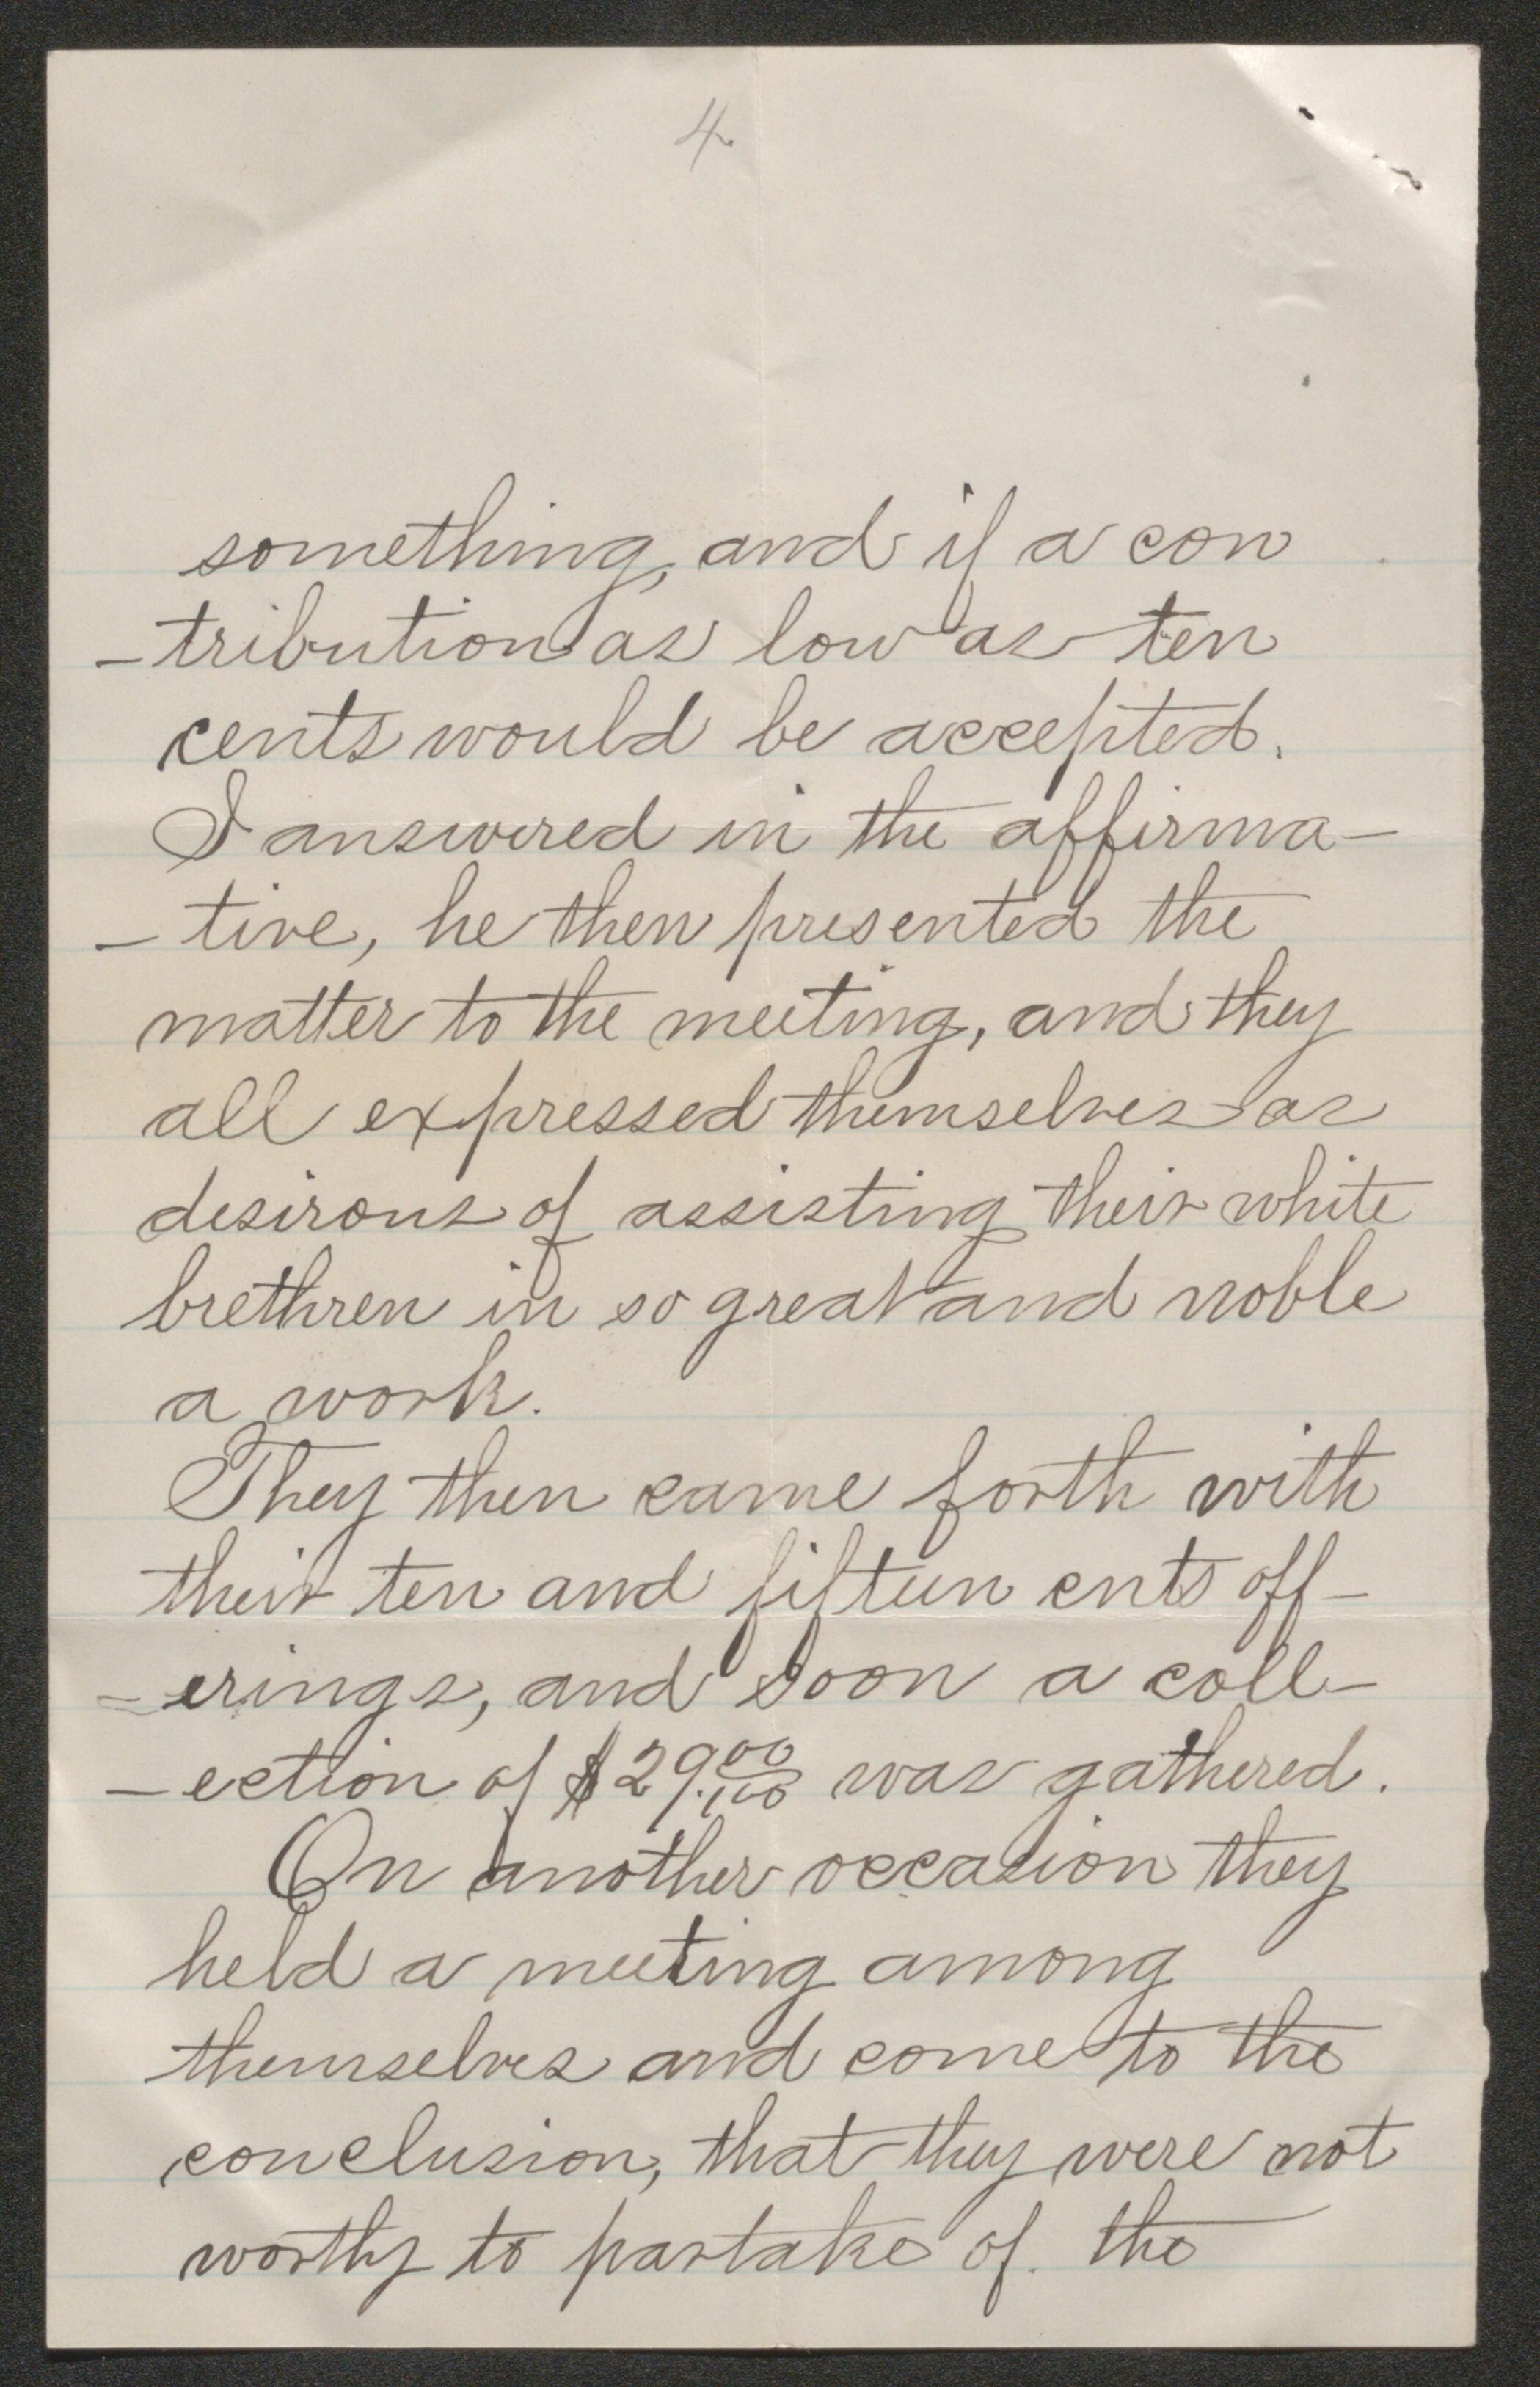 4
something, and if a con
-tribution as low as ten
cents would be accepted.
I answered in the affirma-
-tive, he then presented the
matter to the meeting, and they
all expressed themselves as
desirous of assisting their white
brethren in so great and noble
a work.
They then came forth with
their ten and fifteen cnts off-
-erings, and soon a coll-
-ection of $29.00/100 was gathered.
On another occasion they
held a meeting among
themselves and come to the
conclusion, that they were not
worthy to partake of the